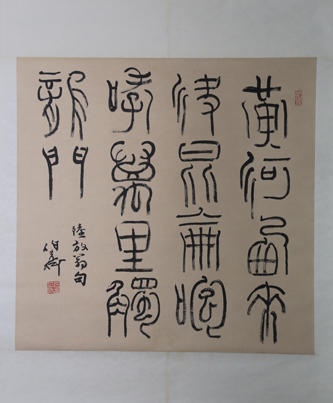 黃河西來
決昆侖咆
哮萬里觸
龍門
陸放翁句